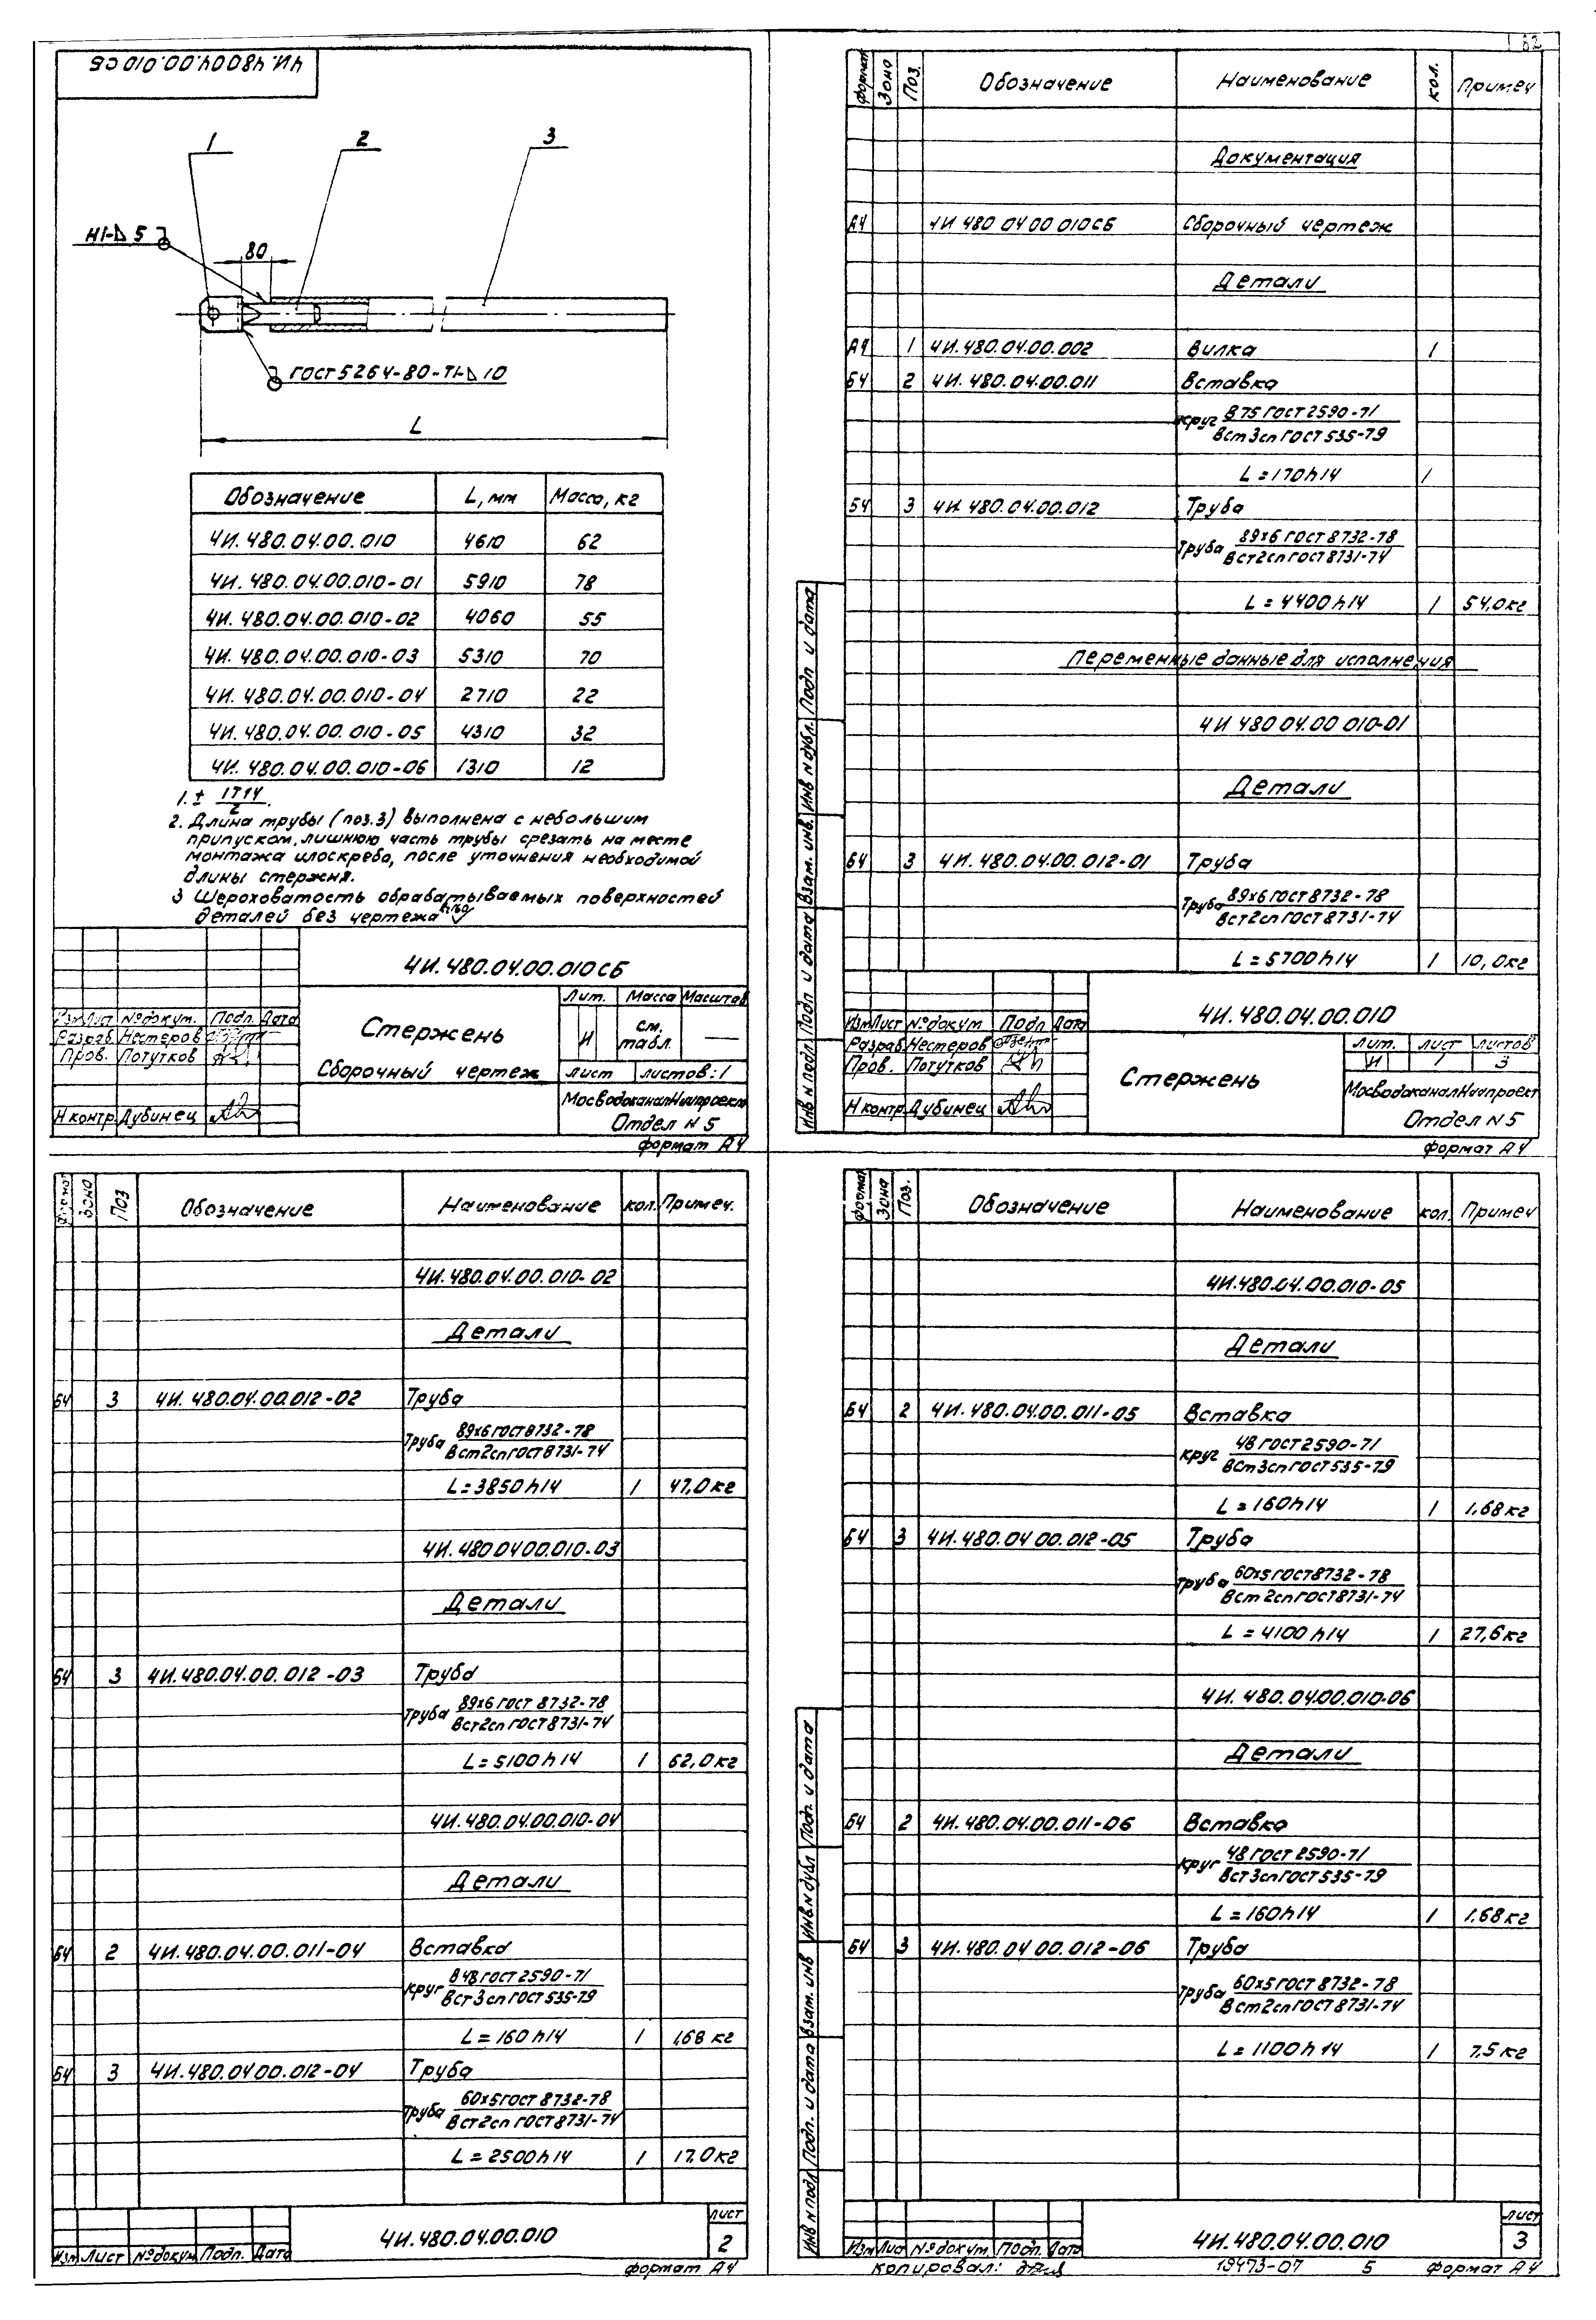 4И.48004.00.010СБ
1
2
3
Н1-⊿ 5
80
ГОСТ 5264-80-Т1-⊿ 10
L
Обозначение L, мм Масса, кг
4И.480.04.00.010 4610 62
4И.480.04.00.010-01 5910 78
4И.480.04.00.010-02 4060 55
4И.480.04.00.010-03 5310 70
4И.480.04.00.010-04 2710 22
4И.480.04.00.010-05 4310 32
4И.480.04.00.010-06 1310 12
1. ± IT14/2.
2. Длина трубы (поз.3) выполнена с небольшим
припуском, лишнюю часть трубы срезать на месте
монтажа илоскреба, после уточнения необходимой
длины стержня.
3 Шероховатость обрабатываемых поверхностей
деталей без чертежа
4И.480.04.00.010СБ
Стержень
Сборочный чертеж
Лит. Масса Масштаб
И см. табл. —
Лист Листов: 1
МосводоканалНиипроект
Отдел N 5
Изм Лист № докум. Подп. Дата
Разраб. Нестеров
Пров. Потутков
Н контр. Дубинец
формат А4
62
формат Зона Поз. Обозначение Наименование кол. Примеч
Документация
А4 4И 480 04 00 010СБ Сборочный чертеж
Детали
А4 1 4И.480.04.00.002 Вилка 1
Б4 2 4И.480.04.00.011 Вставка
Круг В 75 ГОСТ 2590-71
Вст3сп ГОСТ 535-79
L=170h14 1
Б4 3 4И.480.04.00.012 Труба
Труба 89х6 ГОСТ 8732-78
Вст2сп ГОСТ 8731-74
L=4400h14 1 54,0кг
Переменные данные для исполнения
4И 480 04.00 010-01
Детали
Б4 3 4И.480.04.00.012-01 Труба
Труба 89х6 ГОСТ 8732-78
Вст2сп ГОСТ 8731-74
L=5700h14 1 10,0кг
4И.480.04.00.010
Изм Лист № докум Подп Дата
Разраб. Нестеров
Пров. Потутков
Н контр. Дубинец
Стержень
Лит. Лист Листов
И 1 3
МосводоканалНиипроект
Отдел N 5
формат А4
Инв N подл. Подп и дата Взам. инв. Инв N дубл. Подп и дата
формат Зона Поз Обозначение Наименование кол. Примеч.
4И.480.04.00.010-02
Детали
Б4 3 4И.480.04.00.012-02 Труба
Труба 89х6 ГОСТ 8732-78
Вст2сп ГОСТ 8731-74
L=3850h14 1 47,0кг
4И.480.0400.010-03
Детали
Б4 3 4И.480.04.00.012-03 Труба
Труба 89х6 ГОСТ 8732-78
Вст2сп ГОСТ 8731-74
L=5100h14 1 62,0кг
4И.480.04.00.010-04
Детали
Б4 2 4И.480.04.00.011-04 Вставка
Круг В48 ГОСТ 2590-71
Вст3сп ГОСТ 535-79
L=160h14 1 1,68 кг
Б4 3 4И.480.0400.012-04 Труба
Труба 60х5 ГОСТ 8732-78
Вст2сп ГОСТ 8731-74
L=2500h14 1 17,0кг
Изм Лист № докум Подп. Дата
4И.480.04.00.010
Лист
2
формат А4
формат Зона Поз. Обозначение Наименование кол. Примеч
4И.480.04.00.010-05
Детали
Б4 2 4И.480.04.00.011-05 Вставка
Круг 48 ГОСТ 2590-71
Вст3сп ГОСТ 535-79
L=160h14 1 1,68кг
Б4 3 4И.480.04 00.012-05 Труба
Труба 60х5 ГОСТ 8732-78
Вст2сп ГОСТ 8731-74
L=4100h14 1 27,6кг
4И.480.04.00.010-06
Детали
Б4 2 4И.480.04.00.011-06 Вставка
Круг 48 ГОСТ 2590-71
Вст3сп ГОСТ 535-79
L=160h14 1 1,68кг
Б4 3 4И.480.04 00.012-06 Труба
Труба 60х5 ГОСТ 8732-78
Вст2сп ГОСТ 8731-74
L=1100h14 1 7,5кг
Инв N подл Подп. и дата Взам. инв Инв.N дубл Подп. и дата
Изм Лис № докум. Подп. Дата
4И.480.04.00.010
Лист
3
копировал:
19473-07 5 формат А4